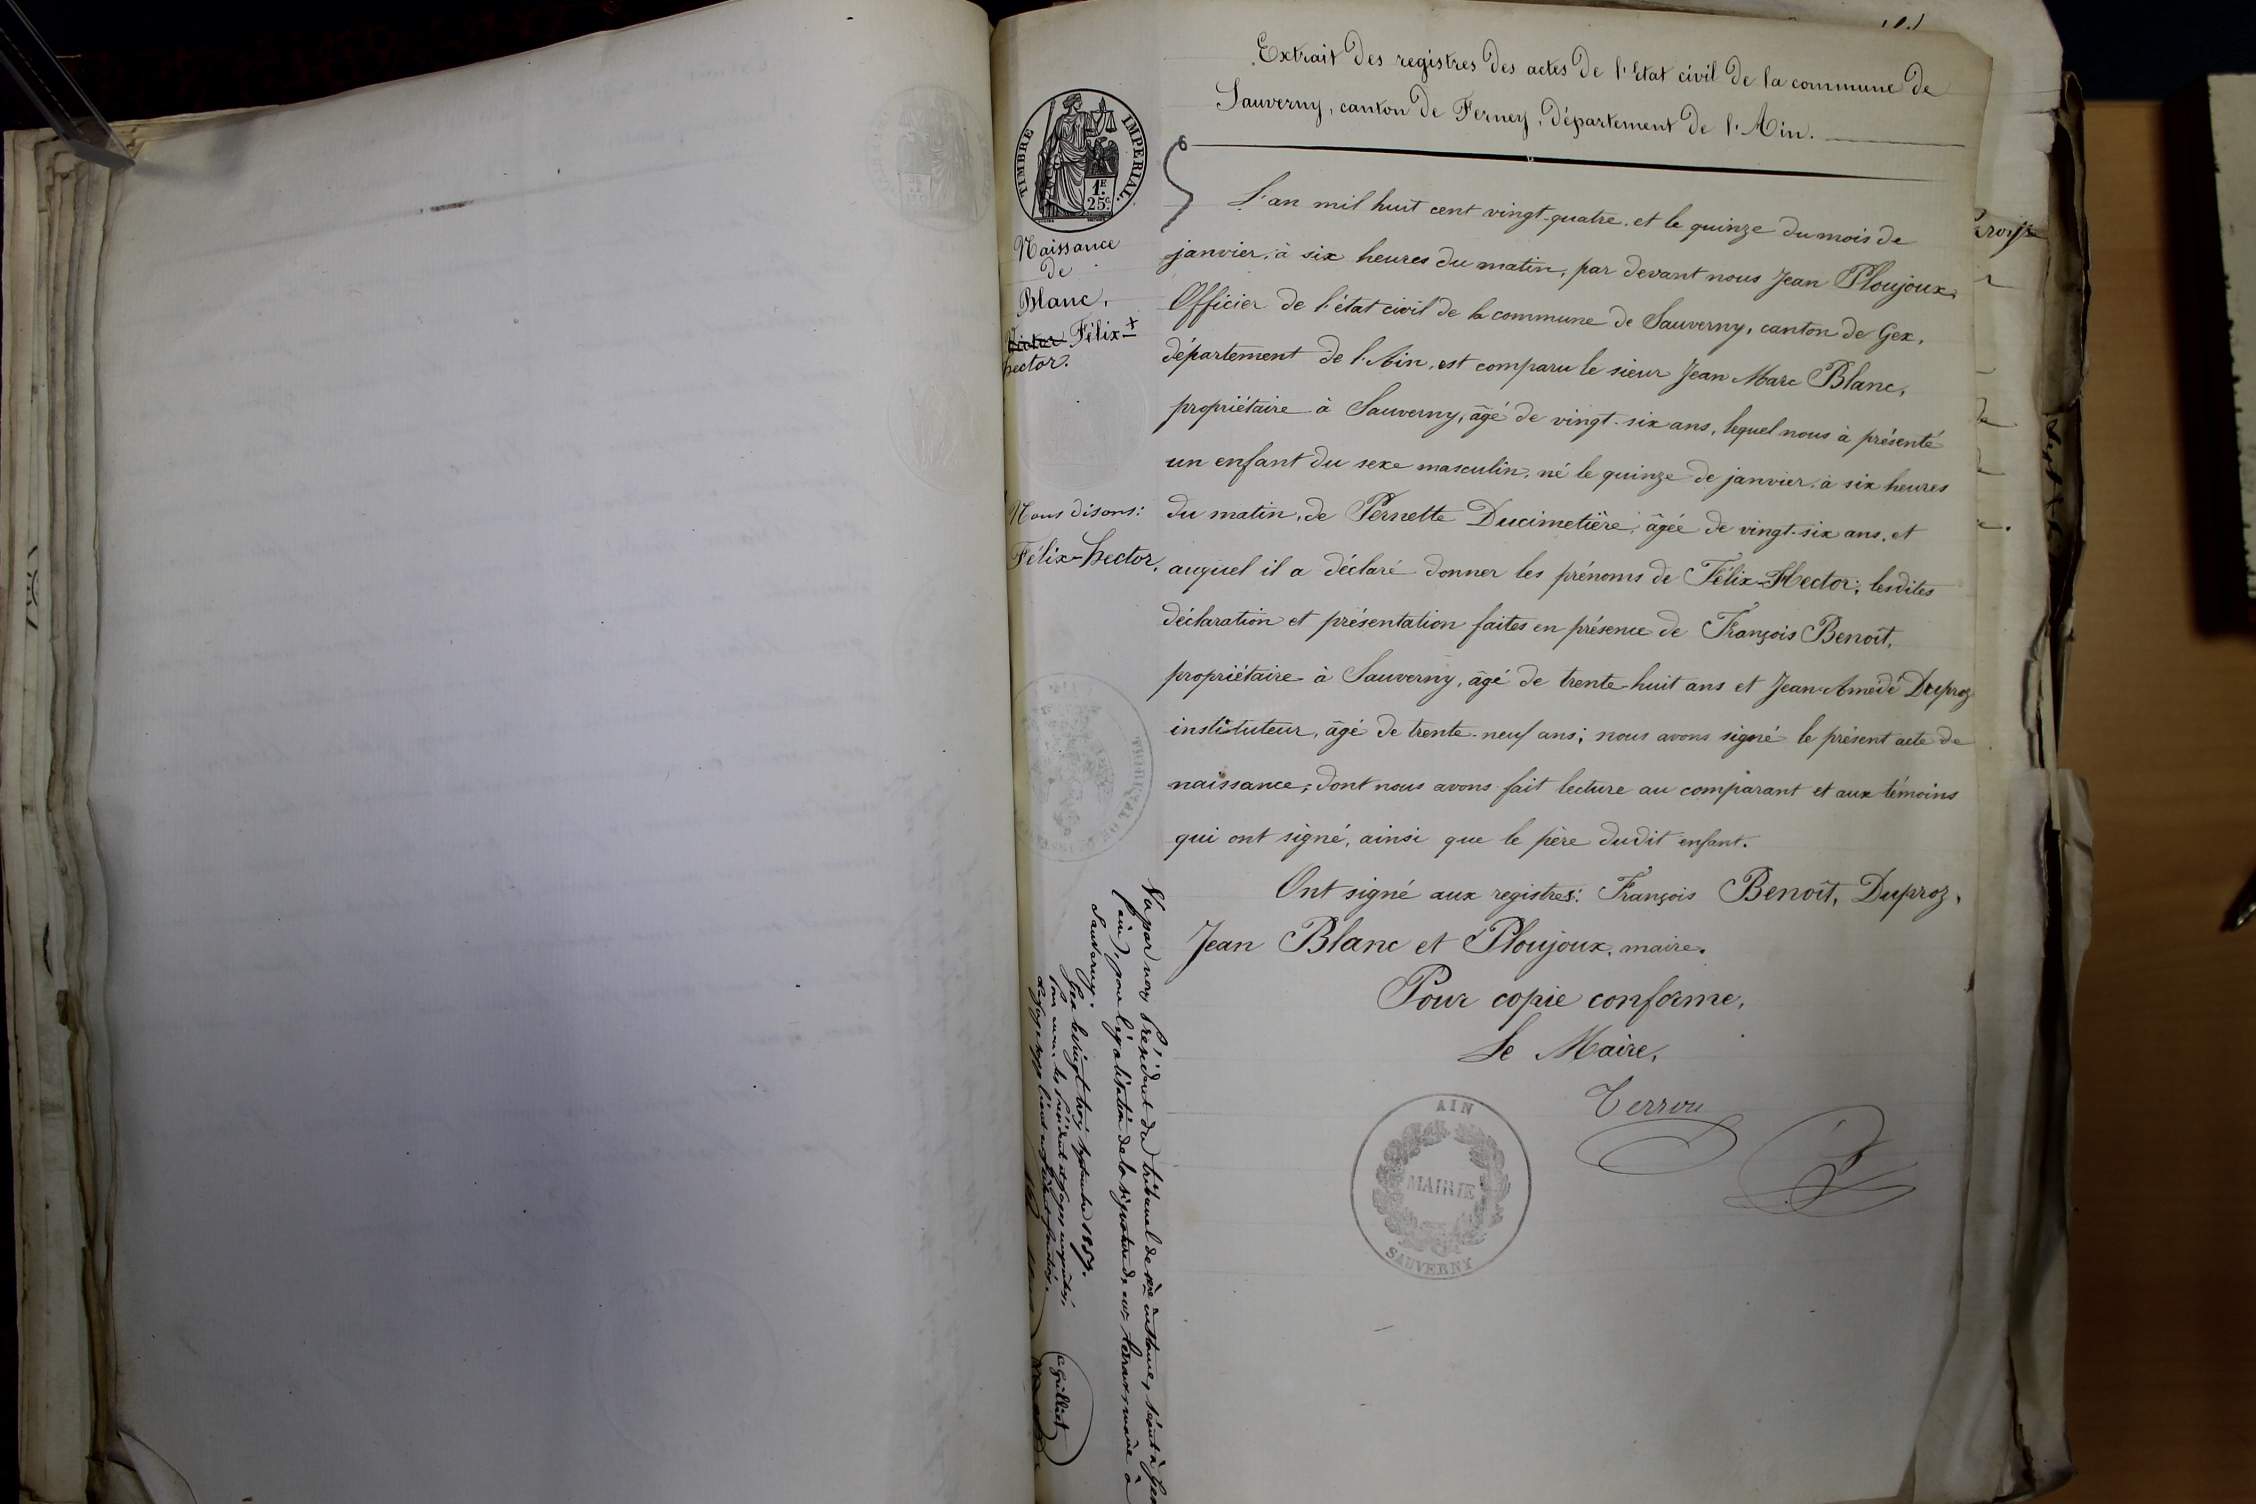 Extrait des registres des actes de l'état civil de la commune de
Sauverny, canton de Ferney, département de l'Ain.
TIMBRE IMPERIAL.
1F.
25c.
Naissance
de
Blanc,
Victor Félix +
hector.
L'an mil huit cent vingt-quatre, et le quinze du mois de
janvier, à six heures du matin, par devant nous Jean Ploujoux,
Officier de l'état civil de la commune de Sauverny, canton de Gex,
département de l'Ain, est comparu le sieur Jean Marc Blanc,
propriétaire à Sauverny, âgé de vingt-six ans, lequel nous à présenté
un enfant du sexe masculin, né le quinze de janvier, à six heures
du matin, de Pernette Ducimetière, âgée de vingt-six ans, et
auquel il a déclaré donner les prénoms de Félix-Hector; lesdites
déclaration et présentation faites en présence de François Benoît,
propriétaire à Sauverny, âgé de trente-huit ans et Jean-Amédé Duproz
instituteur, âgé de trente-neuf ans; nous avons signé le présent acte de
naissance, dont nous avons fait lecture au comparant et aux témoins
qui ont signé, ainsi que le père dudit enfant.
Ont signé aux registres: François Benoît, Duproz,
Jean Blanc et Ploujoux, maire.
Pour copie conforme,
Le Maire,
Terroux
Nous disons:
Félix-hector.
AIN
MAIRIE
SAUVERNY
TRIBUNAL DE
Vu par nous Président du tribunal de 1ère instance, séant à Gex
(ain), pour légalisation de la signature de mr. Terroux maire à
Sauverny.
Gex le vingt trois septembre 1857.